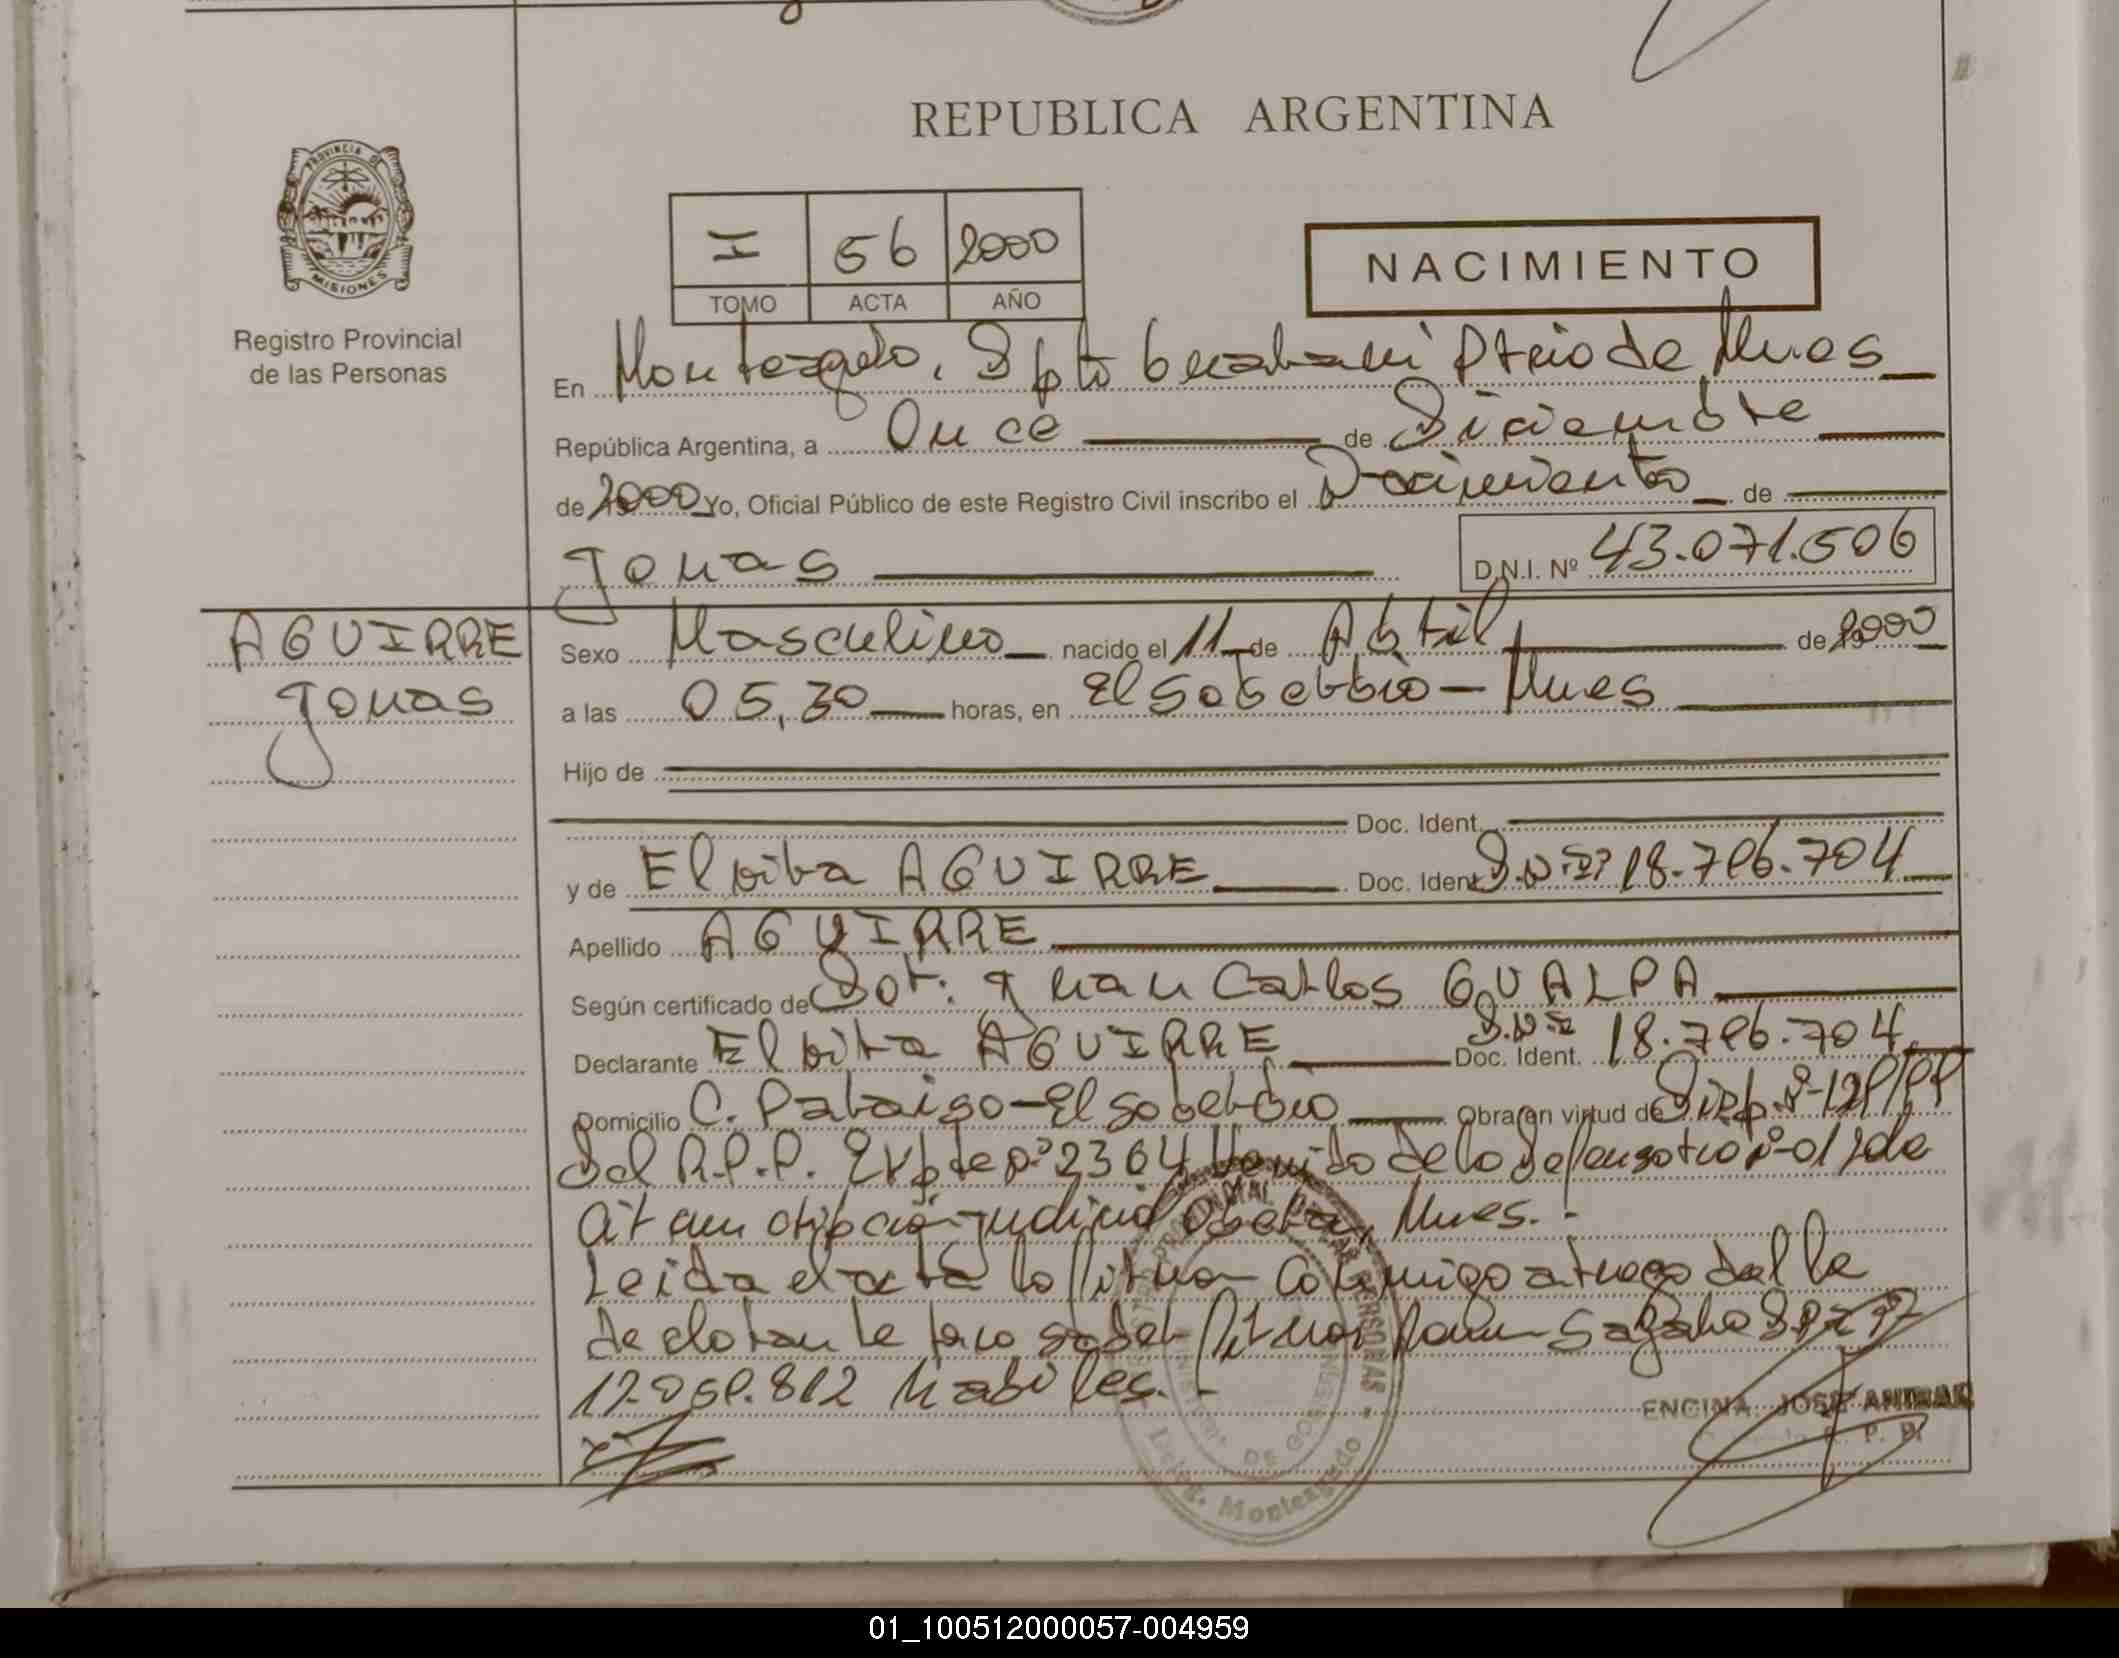 REPUBLICA ARGENTINA
PROVINCIA DE
MISIONES
Registro Provincial
de las Personas
I 56 2000
TOMO ACTA AÑO
NACIMIENTO
En Monteagudo, Dpto Guarani Pcia de Mnes
República Argentina, a Once de Diciembre
de 2000 Yo, Oficial Público de este Registro Civil inscribo el Nacimiento de
Jonas D.N.I. Nº 43.071.506
AGUIRRE
Jonas
Sexo Masculino nacido el 11 de Abril de 2000
a las 05,30 horas, en El Soberbio - Mnes
Hijo de
Doc. Ident.
y de Elvira AGUIRRE Doc. Ident. D.N.I: 18.796.704
Apellido AGUIRRE
Según certificado de Dor: Juan Carlos GUALPA
Declarante Elvira AGUIRRE Doc. Ident. D.N.I 18.796.704
Domicilio C. Paraiso - El Soberbio Obra en virtud de Disp. Nº
Del R.P.P. Expte Nº 2364 de la Defensoria Nº 01
Judicial Obera, Mnes.
Leida el acta la firman conmigo a ruego de la
declarante por no saber firmar
habiles.
ENCINA, JOSE ANIBAL
Deleg. Monteagudo
01_100512000057-004959